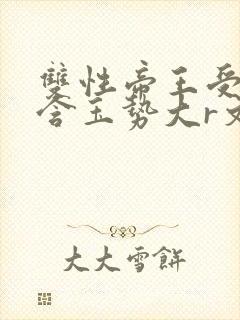 雙性帝王受
含玉勢大r文
大大雪餅